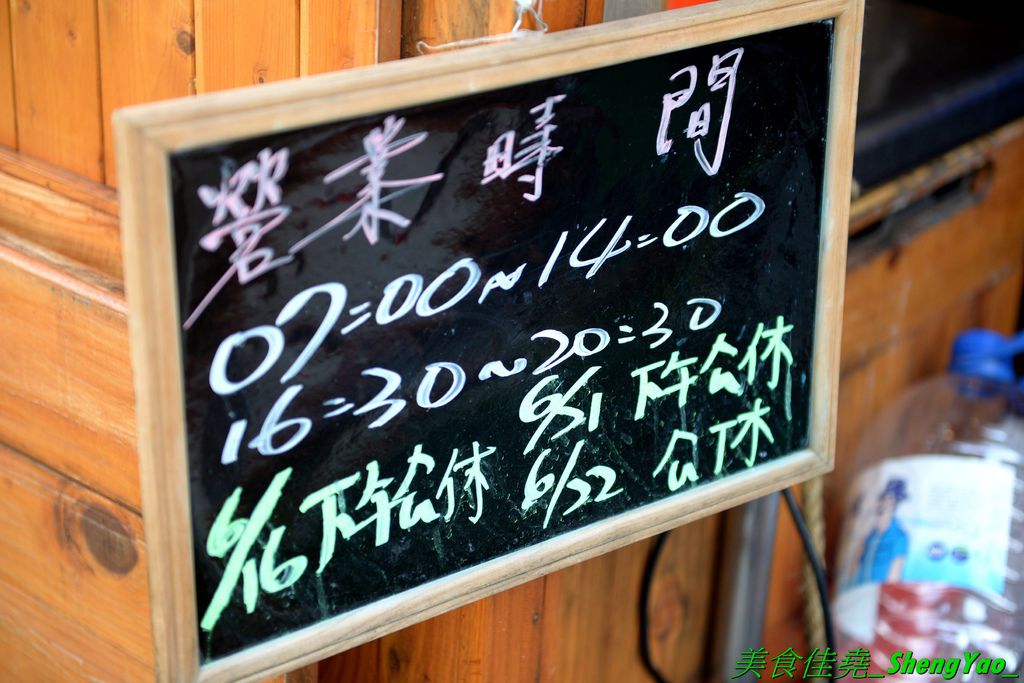 營業時間
07:00~14:00
16:30~20:30
6/16 下午公休
6/21 下午公休
6/22 公休
美食佳堯_ShengYao_